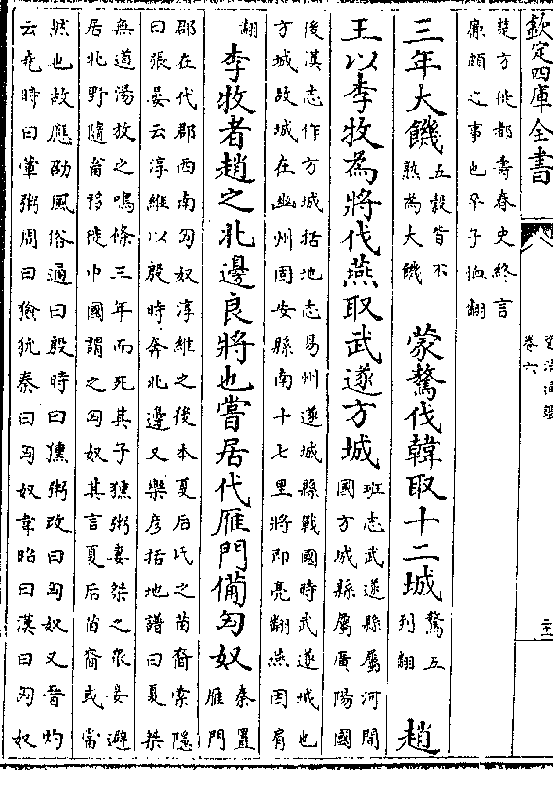 欽定四庫全書
卷六
楚方徙都壽春史終言
廉頗之事也卒子恤翻
三年大饑五穀皆不熟為大饑 蒙驁伐韓取十二城驁五到翻 趙
王以李牧為將伐燕取武遂方城班志武遂縣屬河間國方城縣屬廣陽國
後漢志作方城括地志易州遂城縣戰國時武遂城也
方城故城在幽州固安縣南十七里將即亮翻燕因肩
翻 李牧者趙之北邊良將也嘗居代雁門備匈奴秦置雁門
郡在代郡西南匈奴淳維之後本夏后氏之苗裔索隱
曰張晏云淳維以殷時奔北邊又樂彦括地譜曰夏桀
無道湯放之鳴條三年而死其子獯粥妻桀之衆妾避
居北野隨畜移徙中國謂之匈奴其言夏后苗裔或當
然也故應劭風俗通曰殷時曰獯粥改曰匈奴又晉灼
云堯時曰葷粥周曰獫狁秦曰匈奴韋昭曰漢曰匈奴